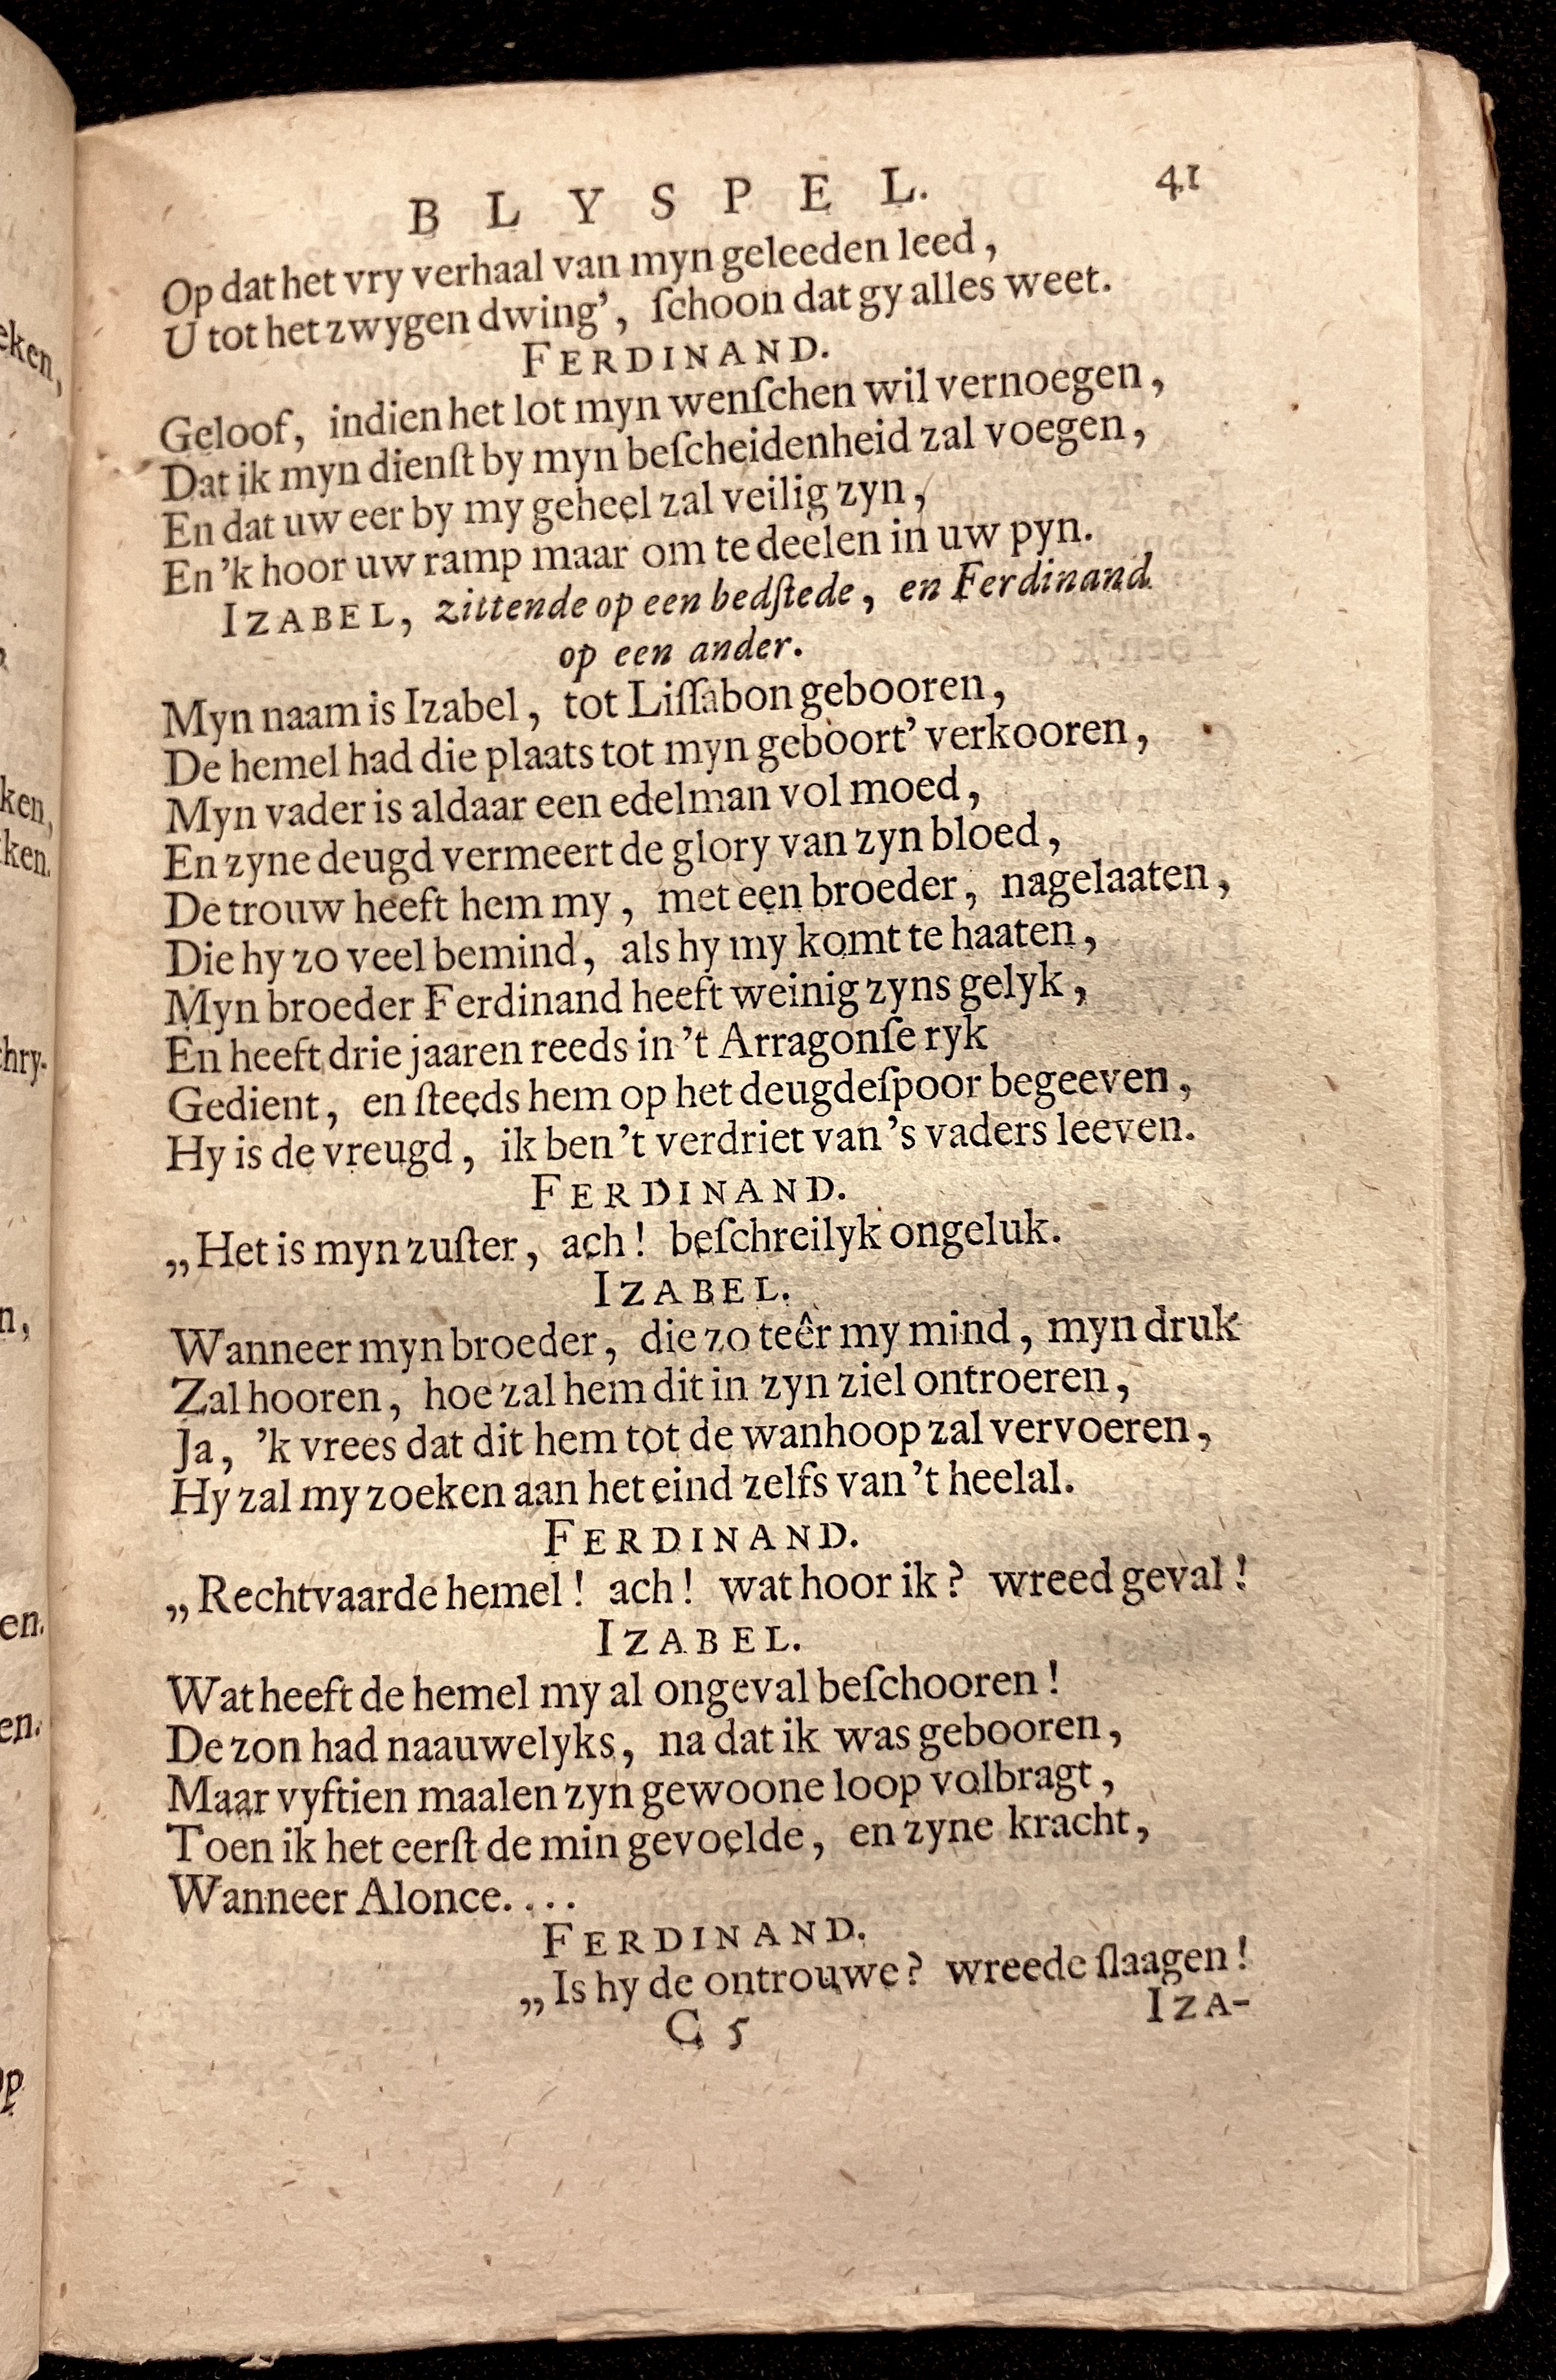 BLYSPEL. 41
Op dat het vry verhaal van myn geleeden leed,
U tot het zwygen dwing', ſchoon dat gy alles weet.
FERDINAND.
Geloof, indien het lot myn wenſchen wil vernoegen,
Dat ik myn dienſt by myn beſcheidenheid zal voegen,
En dat uw eer by my geheel zal veilig zyn,
En 'k hoor uw ramp maar om te deelen in uw pyn.
IZABEL, zittende op een bedſtede, en Ferdinand
op een ander.
Myn naam is Izabel, tot Liſſabon gebooren,
De hemel had die plaats tot myn geboort' verkooren,
Myn vader is aldaar een edelman vol moed,
En zyne deugd vermeert de glory van zyn bloed,
De trouw heeft hem my, met een broeder, nagelaaten,
Die hy zo veel bemind, als hy my komt te haaten,
Myn broeder Ferdinand heeft weinig zyns gelyk,
En heeft drie jaaren reeds in 't Arragonſe ryk
Gedient, en ſteeds hem op het deugdeſpoor begeeven,
Hy is de vreugd, ik ben 't verdriet van 's vaders leeven.
FERDINAND.
„Het is myn zuſter, ach! beſchreilyk ongeluk.
IZABEL.
Wanneer myn broeder, die zo teêr my mind, myn druk
Zal hooren, hoe zal hem dit in zyn ziel ontroeren,
Ja, 'k vrees dat dit hem tot de wanhoop zal vervoeren,
Hy zal my zoeken aan het eind zelfs van 't heelal.
FERDINAND.
„Rechtvaarde hemel! ach! wat hoor ik? wreed geval!
IZABEL.
Wat heeft de hemel my al ongeval beſchooren!
De zon had naauwelyks, na dat ik was gebooren,
Maar vyftien maalen zyn gewoone loop volbragt,
Toen ik het eerſt de min gevoelde, en zyne kracht,
Wanneer Alonce....
FERDINAND.
„Is hy de ontrouwe? wreede ſlaagen!
C 5 IZA-